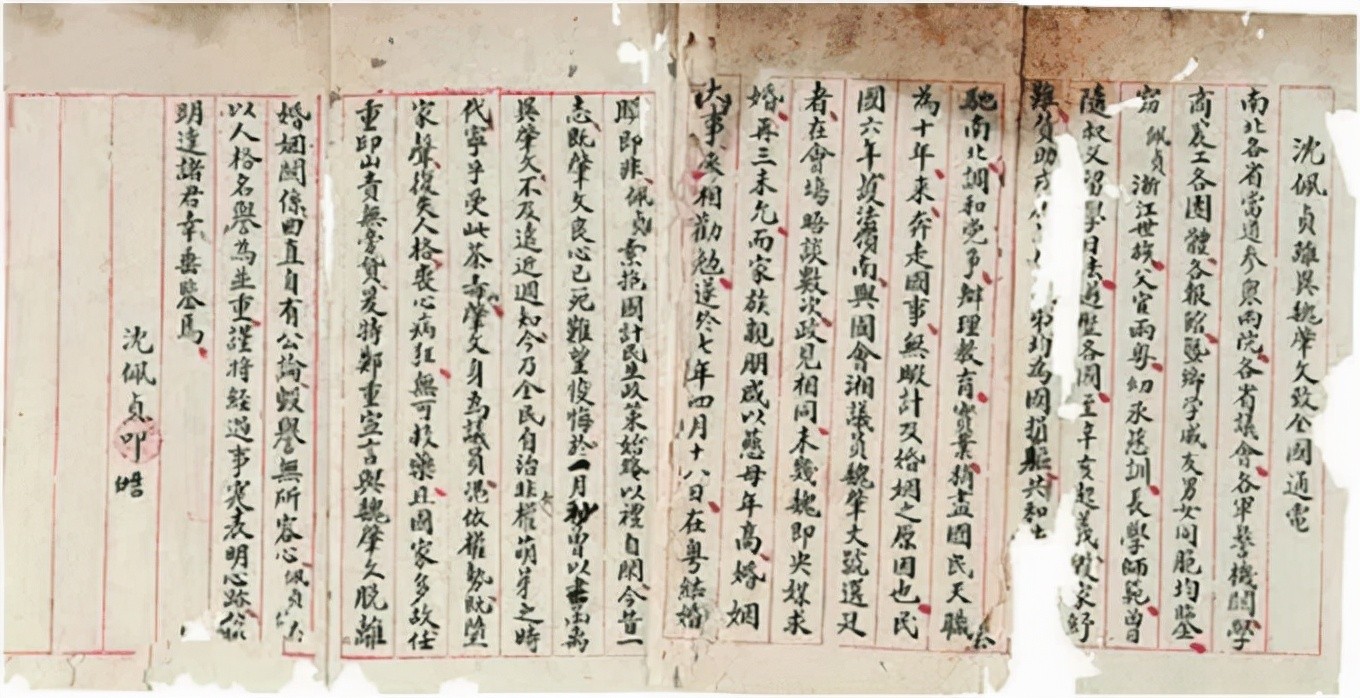 沈佩貞離異魏肇文致全國通電
南北各省當道參眾兩院各省議會各軍警機關學
商農工各團體各報館暨鄉學戚友男女同胞均鑒
竊佩貞浙江世族父官兩粵幼承慈訓長學師範曾
隨叔父留學日法遊歷各國至辛亥起義毀家紓
難資助 均為國捐軀共和
馳南北調和黨爭辦理教育實業稍盡國民天職
為十年來奔走國事無暇計及婚姻之原因也民
國六年護法廣南與國會湘議員魏肇文號選廷
者在會場晤談數次政見相同未幾魏即央媒求
婚再三未允而家族親朋咸以慈母年高婚姻
大事疾相勸勉遂於七年四月十八日在粵結婚
聊即非佩貞素抱國計民生政策始終以禮自閑今昔一
志既肇文良心已死難望悛悔於一月秒曾以書函
與肇文不及遠近週知今乃全民自治女權萌芽之時
代寧乎受此荼毒肇文身為議員混依權勢既墮
家聲復失人格喪心病狂無可救藥且國家多故任
重邱山責無旁貸爰特鄭重宣言與魏肇文脫離
婚姻關係曲直自有公論毀譽無所容心佩貞
以人格名譽為並重謹將經過事實表明心跡
明達諸君幸垂鑒焉
沈佩貞叩